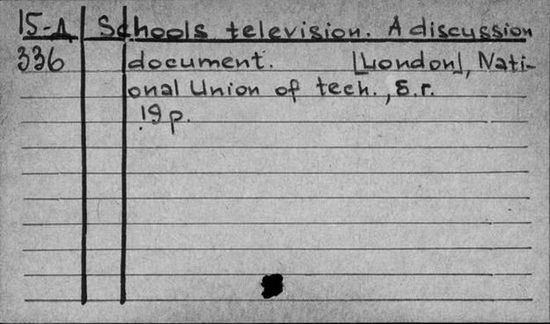 15-A Schools television. A discussion
336 document. [London], Nati-
onal Union of tech., s.r.
19 p.